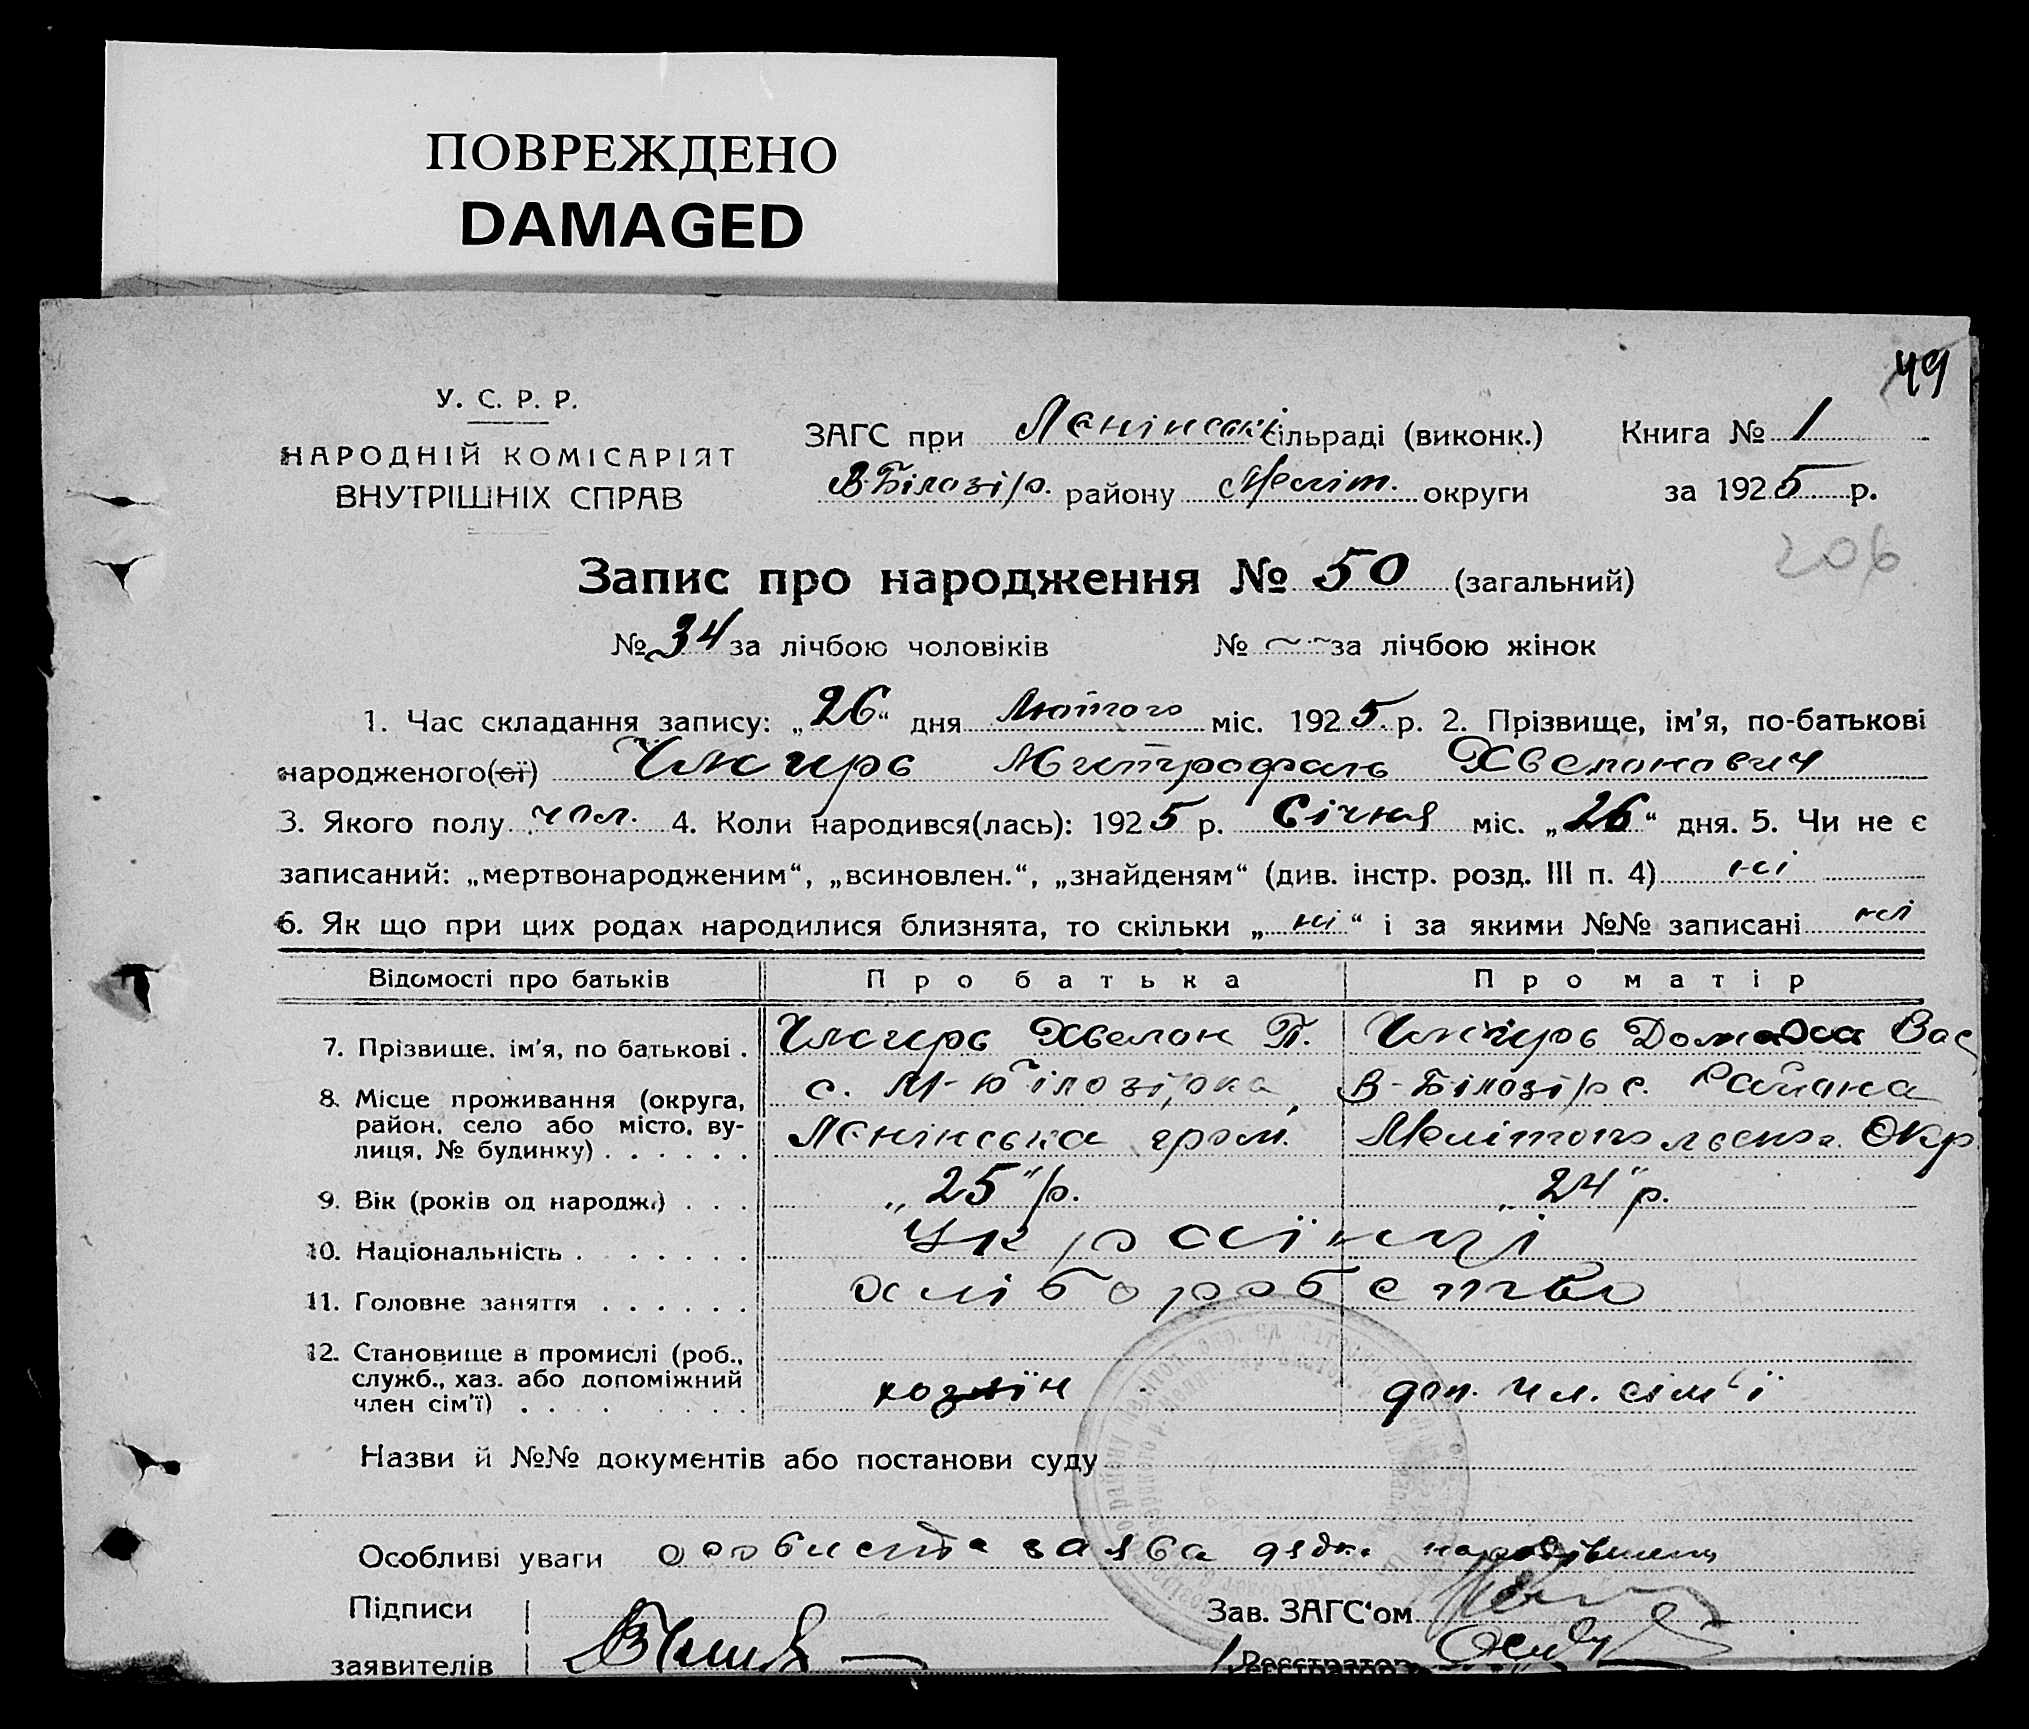 ПОВРЕЖДЕНО
DAMAGED
49
У. С. Р. Р.
НАРОДНІЙ КОМІСАРІЯТ
ВНУТРІШНІХ СПРАВ
ЗАГС при Ленінські сільраді (виконк.) Книга № 1
В-Білозір. району Меліт. округи за 1925 р.
206
Запис про народження № 50 (загальний)
№ 34 за лічбою чоловіків № за лічбою жінок
1. Час складання запису: „26“ дня Лютого міс. 1925 р. 2. Прізвище, ім'я, по-батькові
народженого(ої) Митрофань Хвелонович
3. Якого полу чол. 4. Коли народився(лась): 1925 р. Січня міс. „26“ дня. 5. Чи не є
записаний: „мертвонародженим“, „всиновлен.“, „знайденям“ (див. інстр. розд. III п. 4) ні
6. Як що при цих родах народилися близнята, то скільки „ні“ і за якими №№ записані ні
Відомості про батьків Про батька Про матір
7. Прізвище, ім'я, по батькові . Хвелон П. Домаха Вас
8. Місце проживання (округа, с. М-Білозірка В-Білозірс. Района
район, село або місто, ву-
лиця, № будинку) . . . . . . Ленінська гром. Мелітопольськ. Окр
9. Вік (років од народж.) . . . „25“ р. „24“ р.
10. Національність . . . . . . . Українці
11. Головне заняття . . . . . . хліборобство
12. Становище в промислі (роб.,
служб., хаз. або допоміжний
член сім'ї) . . . . . . . хозяїн доп. чл. сім'ї
Назви й №№ документів або постанови суду
Особливі уваги особиста заява
Підписи Зав. ЗАГС'ом
заявителів Реєстратор